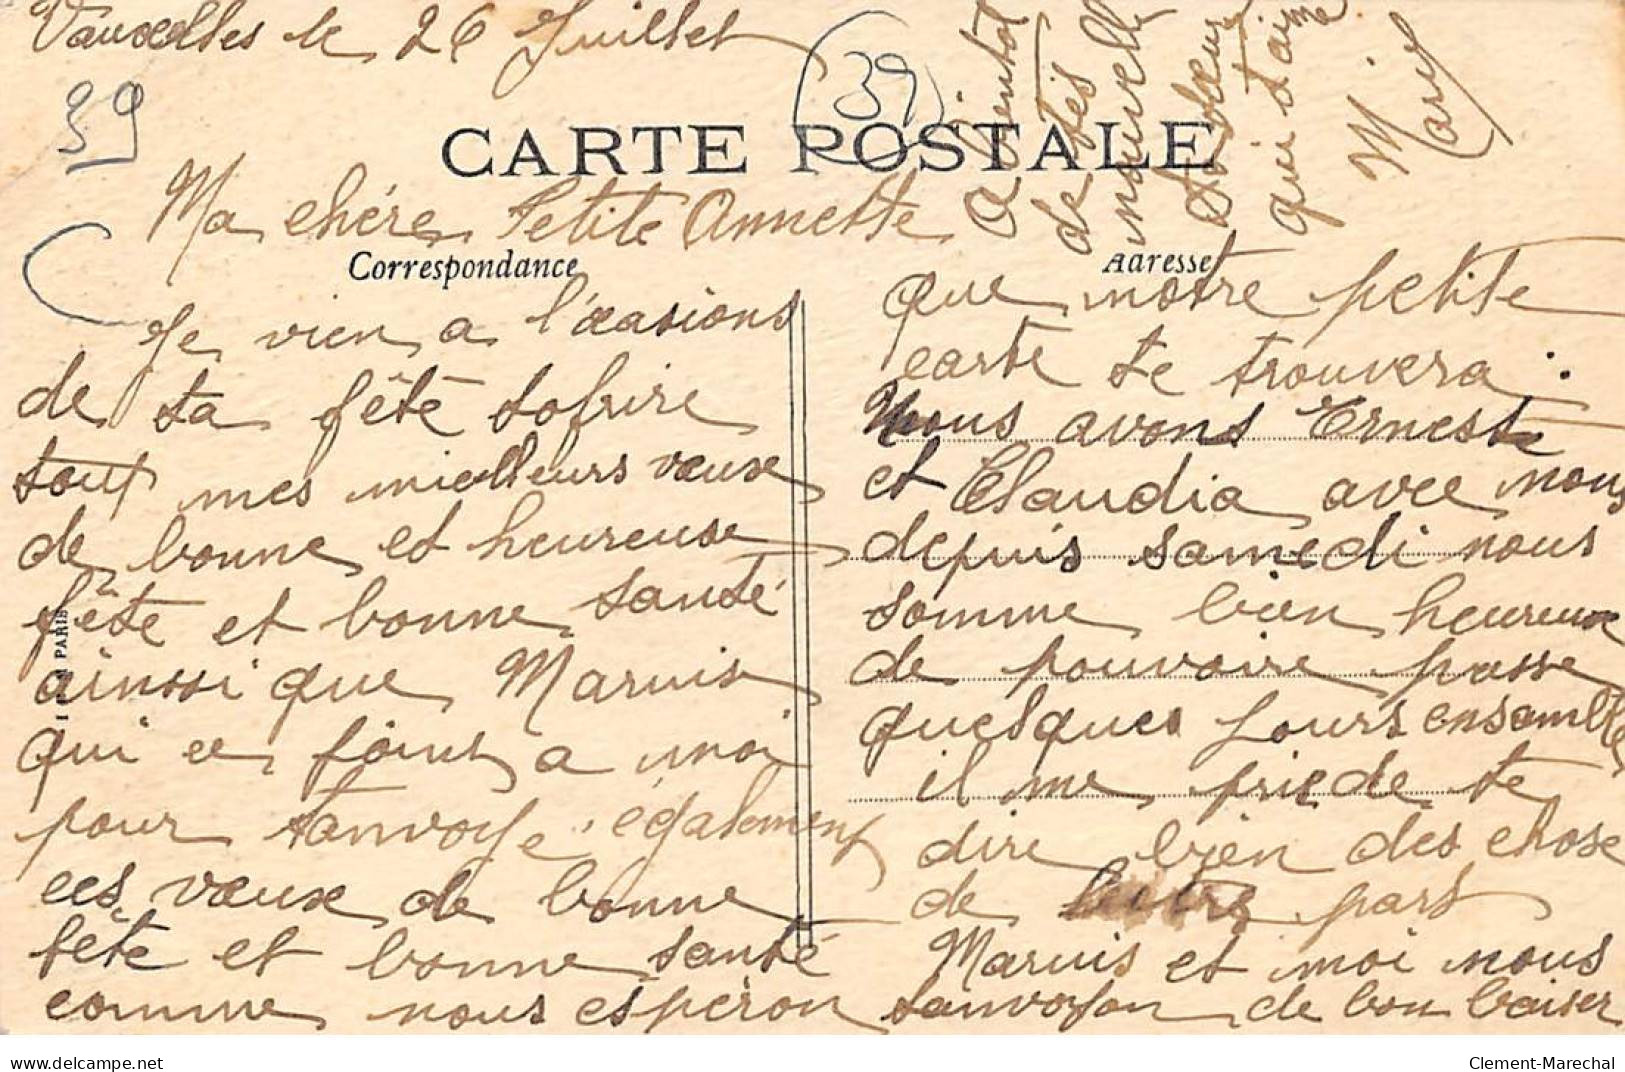 Vauxelles le 26 Juillet
39
39
CARTE POSTALE
Ma chére Petite Annette
Correspondance
Je vien a l'ocasions
de ta fête tofrire
tout mes meilleurs vœux
de bonne et heureuse
fête et bonne santé
ainsi que Marius
qui ce joins a moi
pour tanvoye également
ces vœux de bonne
fête et bonne santé
comme nous espéron
Adresse
que notre petite
carte te trouvera.
Nous avons Erneste
et Claudia avec nous
depuis samedi nous
somme bien heureux
de pouvoire passe
quelques jours ensamble
il me prie de te
dire bien des chose
de leurs part
Marius et moi nous
tanvoyon de bon baiser
A bientot
de tes
nouvelle
Ta sœur
qui t'aime
Marie
PARIS
delcampe.net
Clement-Marechal